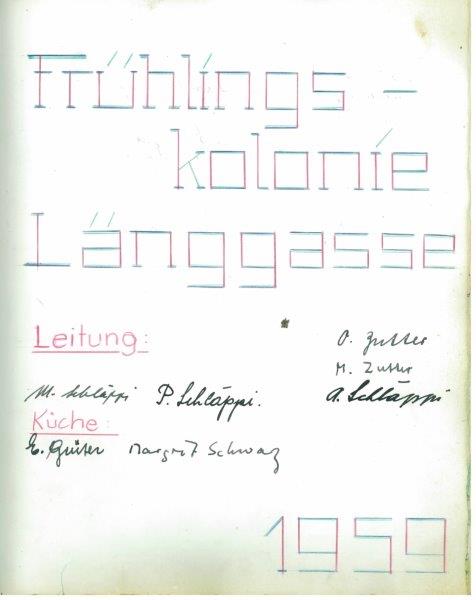 Frühlings-
kolonie
Länggasse
Leitung:
O. Zutter
M. Zutter
M. Schläppi P. Schläppi. A. Schläppi
Küche:
E. Margrit Schwarz
1959